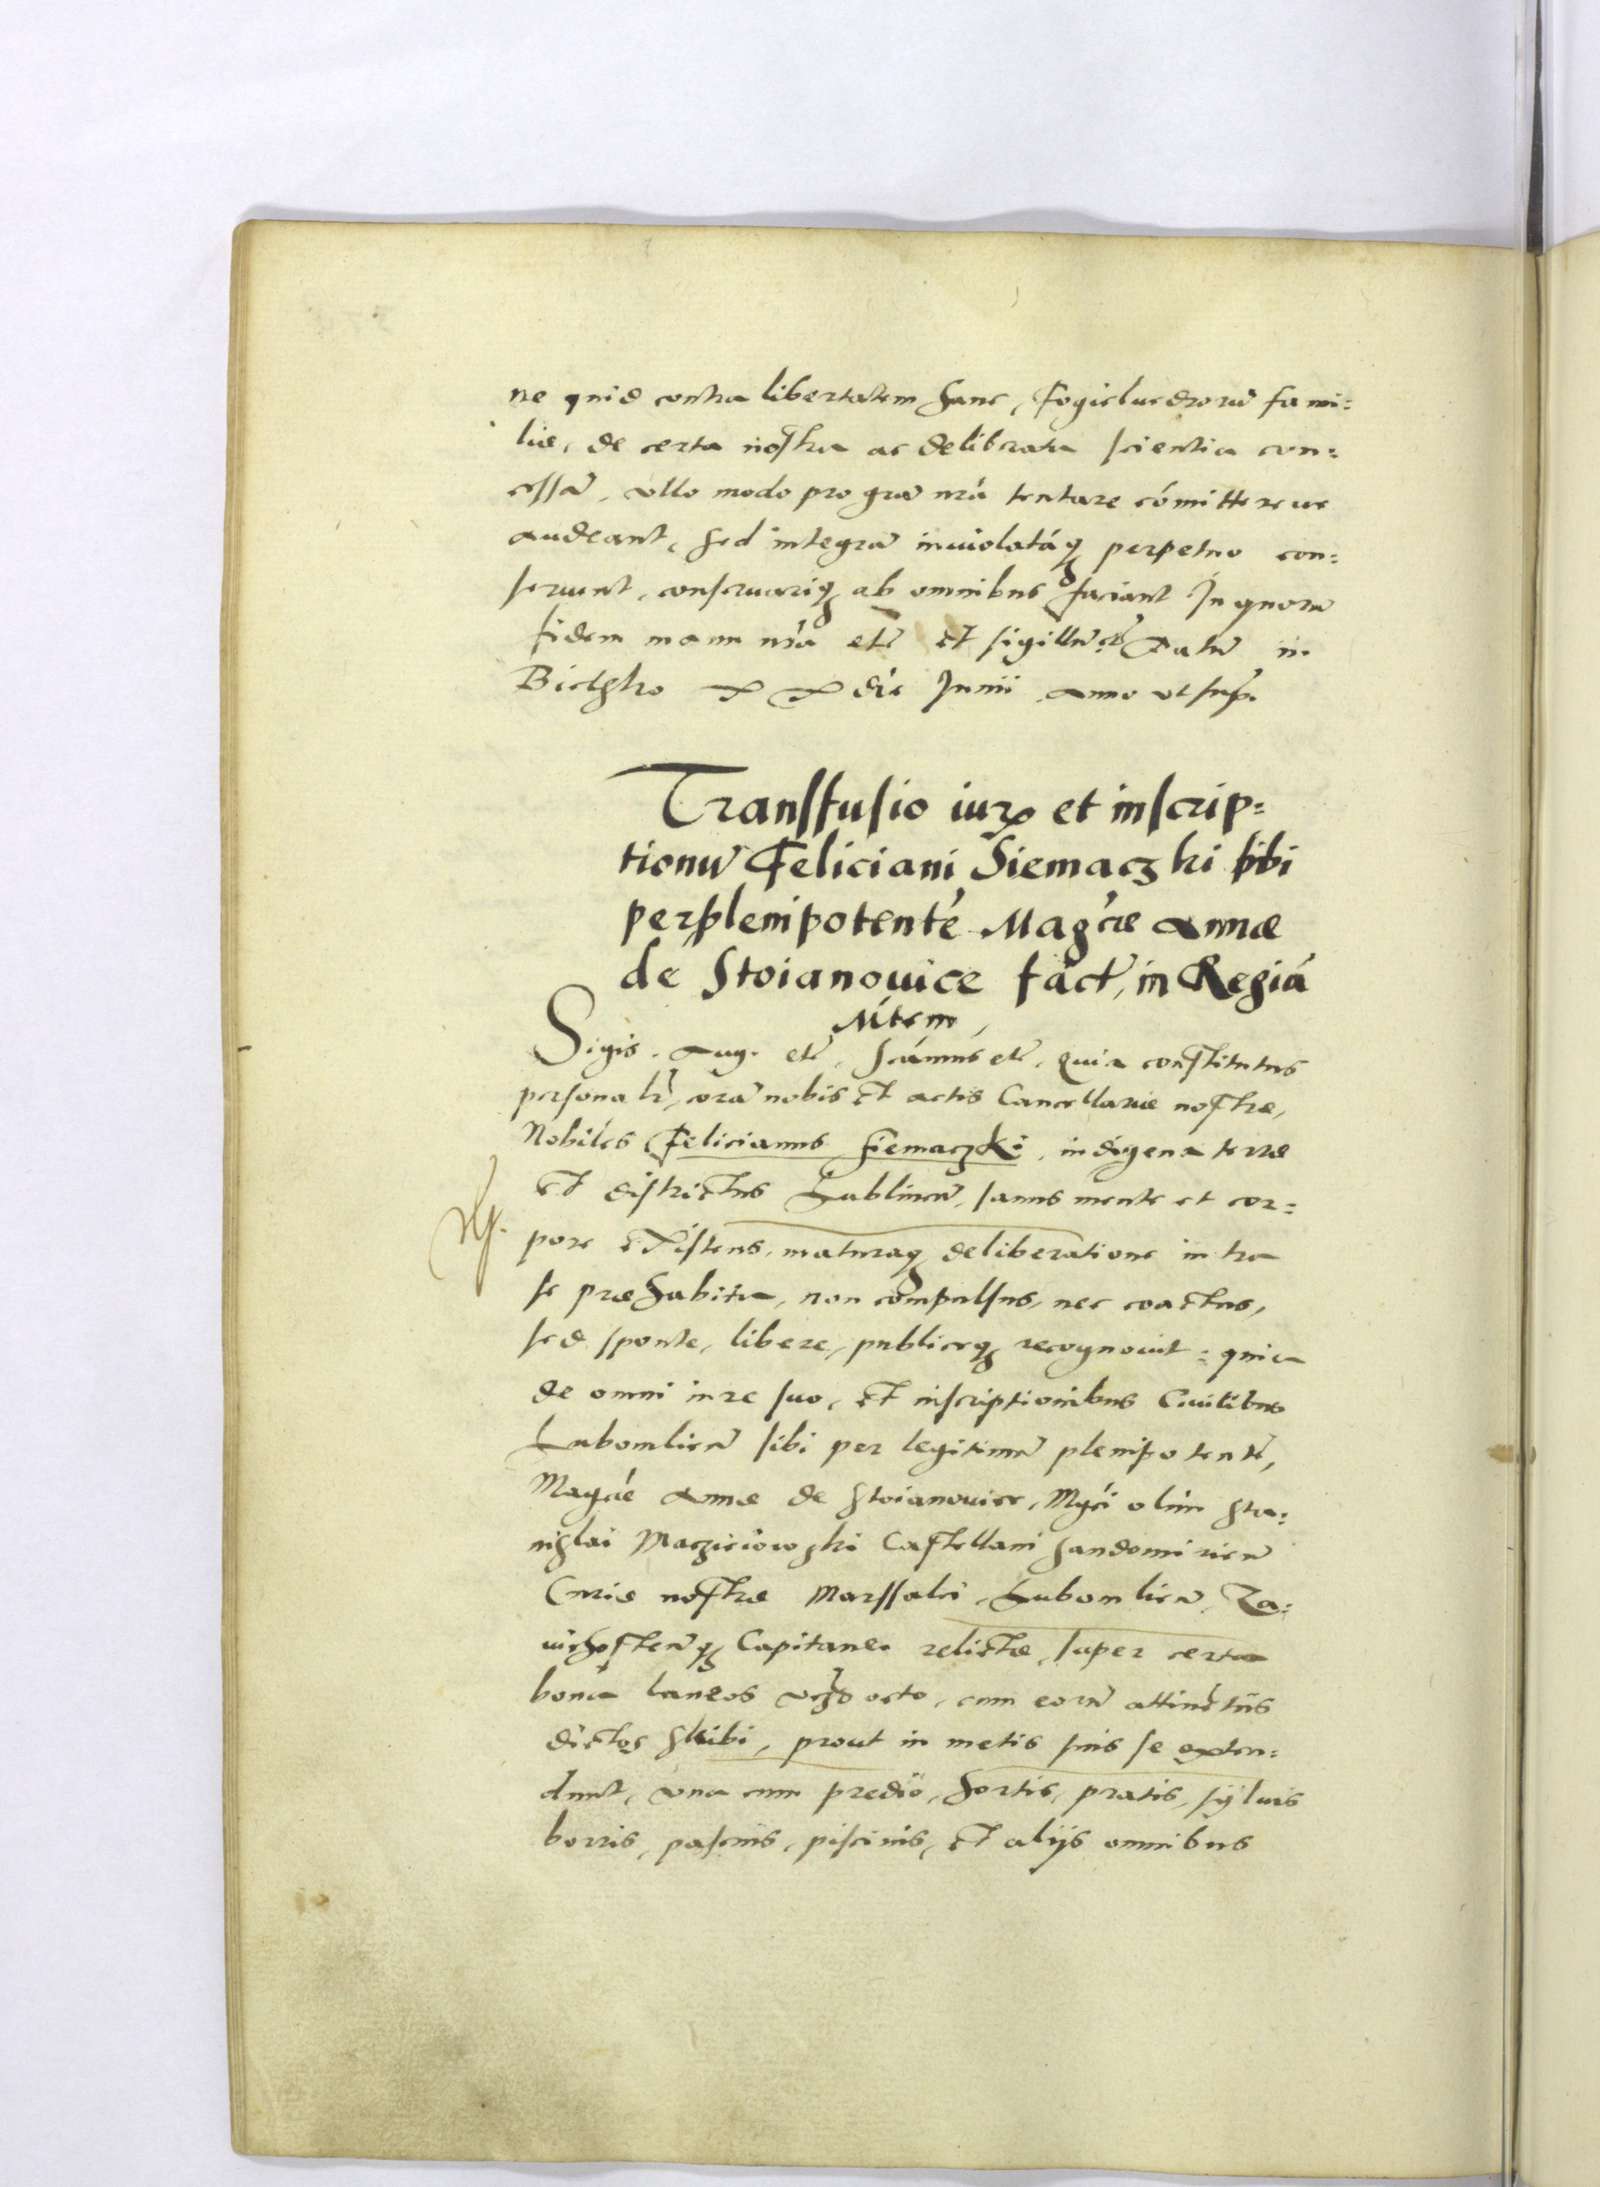 ne quid contra libertatem hanc, Fogielwedrorū fami=
liæ, de certa nostra ac deliberata scientia con=
cessā, ullo modo pro gra nrá tentare cómittereue
audeant, sed integrā inuiolatáq; perpetuo con=
seruent, conseruariq; ab omnibus faciant In quorū
fidem manu nrá etc̄ et sigillū etc̄ Datū in
Bielsko XX die Junii Anno ut sup.
Transfusio iurꝝ et inscrip=
tionū Feliciani Siemaczki sibi
per plenipotenté Mag'cæ Annæ
de Stoianouice fact, in Regiá
Mtem,
Sigis. Aug. etc̄, Scámus etc̄, Quia constitutus
personalr̄, corā nobis et actis Cancellariæ nostræ,
Nobiles Felicianus Siemaczki, indigena terræ
et districtus Lublineñ, sanus mente et cor=
pore existens, maturaq; deliberatione intra
se præhabita, non compulsus, nec coactus,
sed sponte, libere, publiceq; recognouit: quia
de omni iure suo, et inscriptionibus Ciuilibus
Lubomlieñ sibi per legitimū plenipotentē,
Magcé Annæ de Stoianouice, Mgci olim Sta=
nislai Macziciowski Castellani Sandomirieñ
Curiæ nostræ Marssalci, Lubomlieñ, Za=
uichosteñq; Capitanei relictæ, super certa
bona laneos vcz octo, cum eorū attinētiis
dictos Skibi, prout in metis suis se exten=
dunt, una cum prediō, hortis, pratis, syluis
borris, pascuis, piscinis, et aliis omnibus